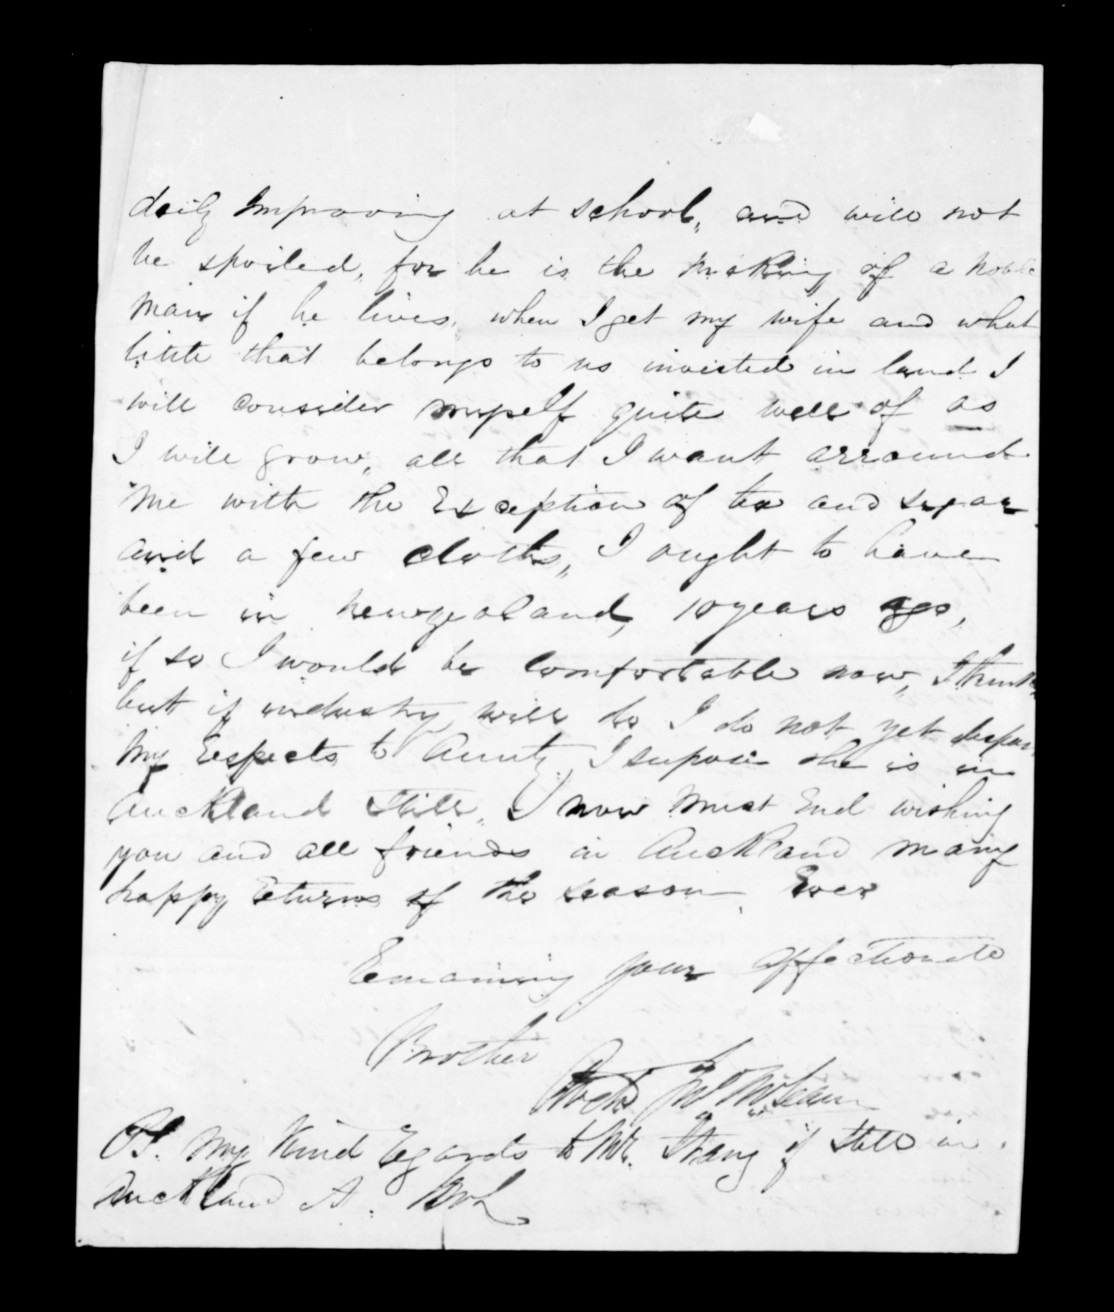 daily Improving at school, and will not
be spoiled, for he is the making of a noble
man if he lives, when I get my wife and what
little that belongs to us invested in land I
will consider myself quite well of as
I will grow, all that I want arround
me with the Exception of tea and sugar
and a few cloths, I ought to have
been in newzealand, 10 years ago,
if so I would be comfortable now, I think
but if industry will do I do not yet despair
My Respects to Aunty, I supose she is in
Auckland still, I now must End wishing
you and all friends in Auckland many
happy Returns of the season. Ever
Remaining your affectionate
Brother
McLean
PS. My Kind Regards to Mr. Strang if still in
Auckland A.